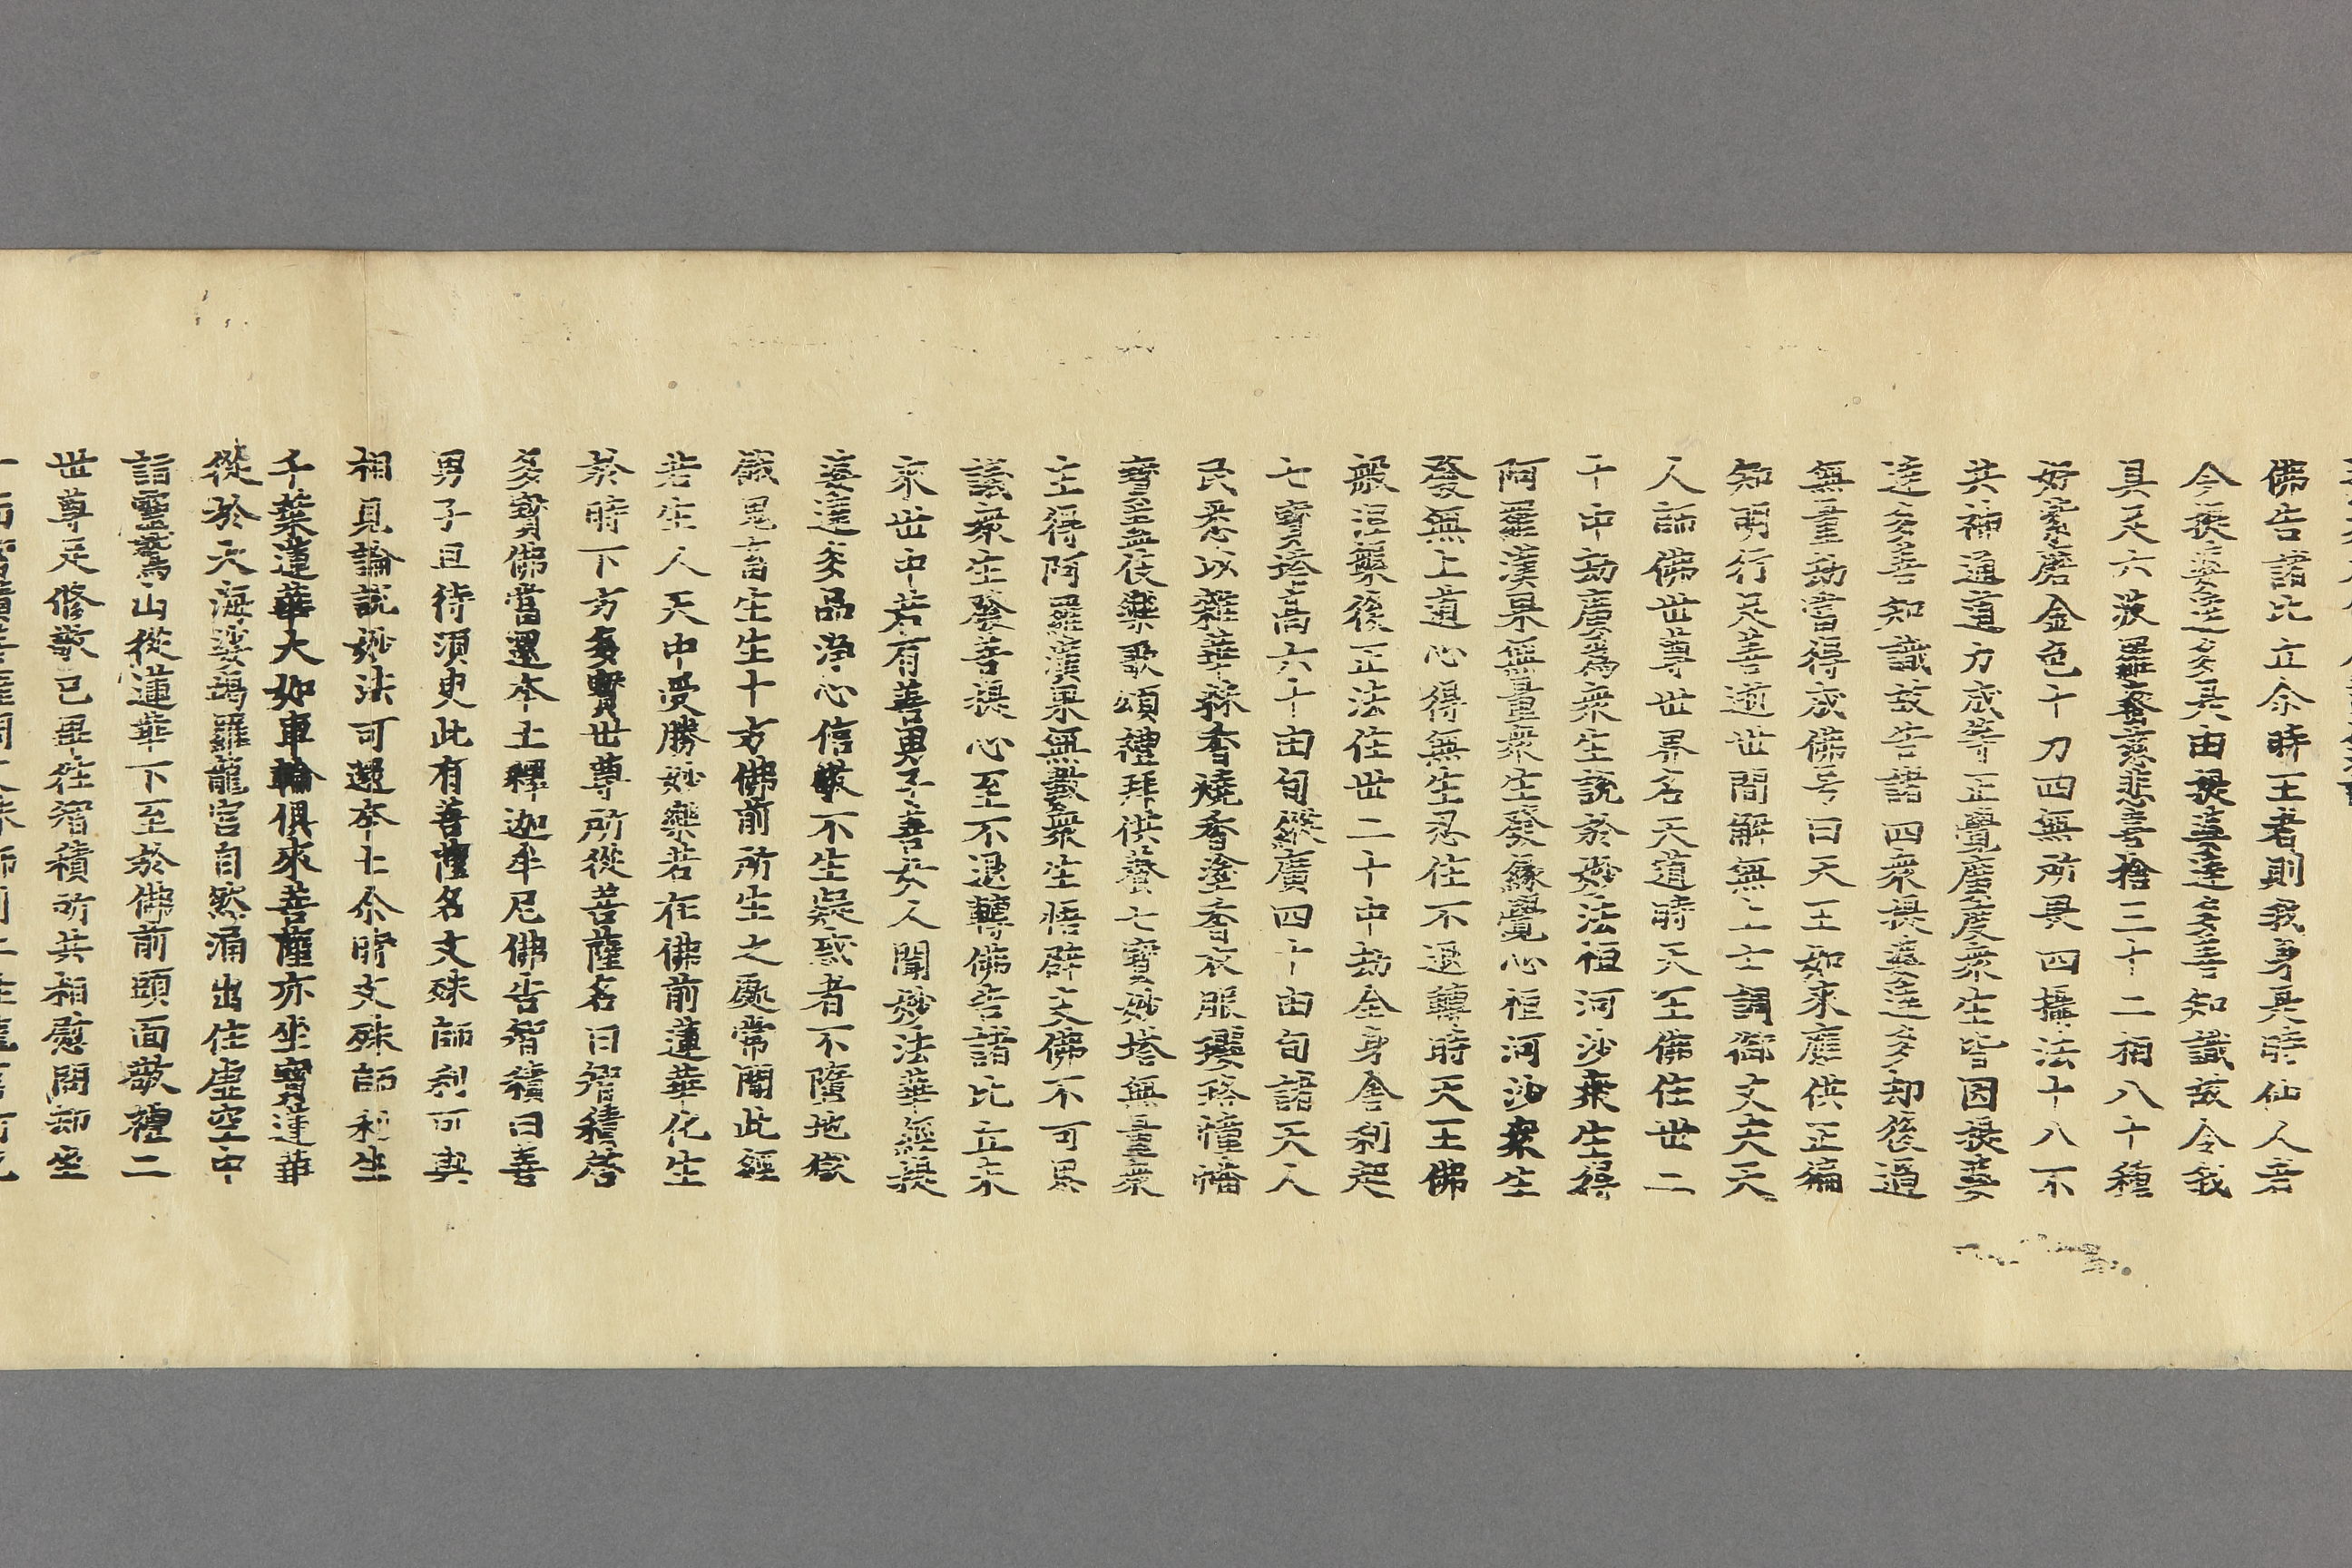 佛告諸比丘尒時王者則我身是時仙人者
今提婆達多是由提婆達多善知識故令我
具足六波羅蜜慈悲喜捨三十二相八十種
好紫磨金色十力四無所畏四攝法十八不
共神通道力成等正覺廣度衆生皆因提婆
達多善知識故告諸四衆提婆達多却後過
無量劫當得成佛号曰天王如來應供正徧
知明行足善逝世間解無上士調御丈夫天
人師佛世尊世界名天道時天王佛住世二
十中劫廣爲衆生說於妙法恒河沙衆生得
阿羅漢果無量衆生發緣覺心恒河沙衆生
發無上道心得無生忍住不退轉時天王佛
般涅槃後正法住世二十中劫全身舍利起
七寶塔高六十由旬縱廣四十由旬諸天人
民悉以雜華抹香燒香塗香衣服瓔珞幢幡
寶蓋伎樂歌頌禮拜供養七寶妙塔無量衆
生得阿羅漢果無數衆生悟辟支佛不可思
議衆生發菩提心至不退轉佛告諸比丘未
來世中若有善男子善女人聞妙法華經提
婆達多品淨心信敬不生疑惑者不墮地獄
餓鬼畜生生十方佛前所生之處常聞此經
若生人天中受勝妙樂若在佛前蓮華化生
於時下方多寶世尊所從菩薩名曰智積啓
多寶佛當還本土釋迦牟尼佛告智積曰善
男子且待須臾此有菩薩名文殊師利可與
相見論說妙法可還本土尒時文殊師利坐
千葉蓮華大如車輪俱來菩薩亦坐寶蓮華
從於大海娑竭羅龍宮自然涌出住虛空中
詣靈鷲山從蓮華下至於佛前頭面敬禮二
世尊足修敬已畢往智積所共相慰問却坐